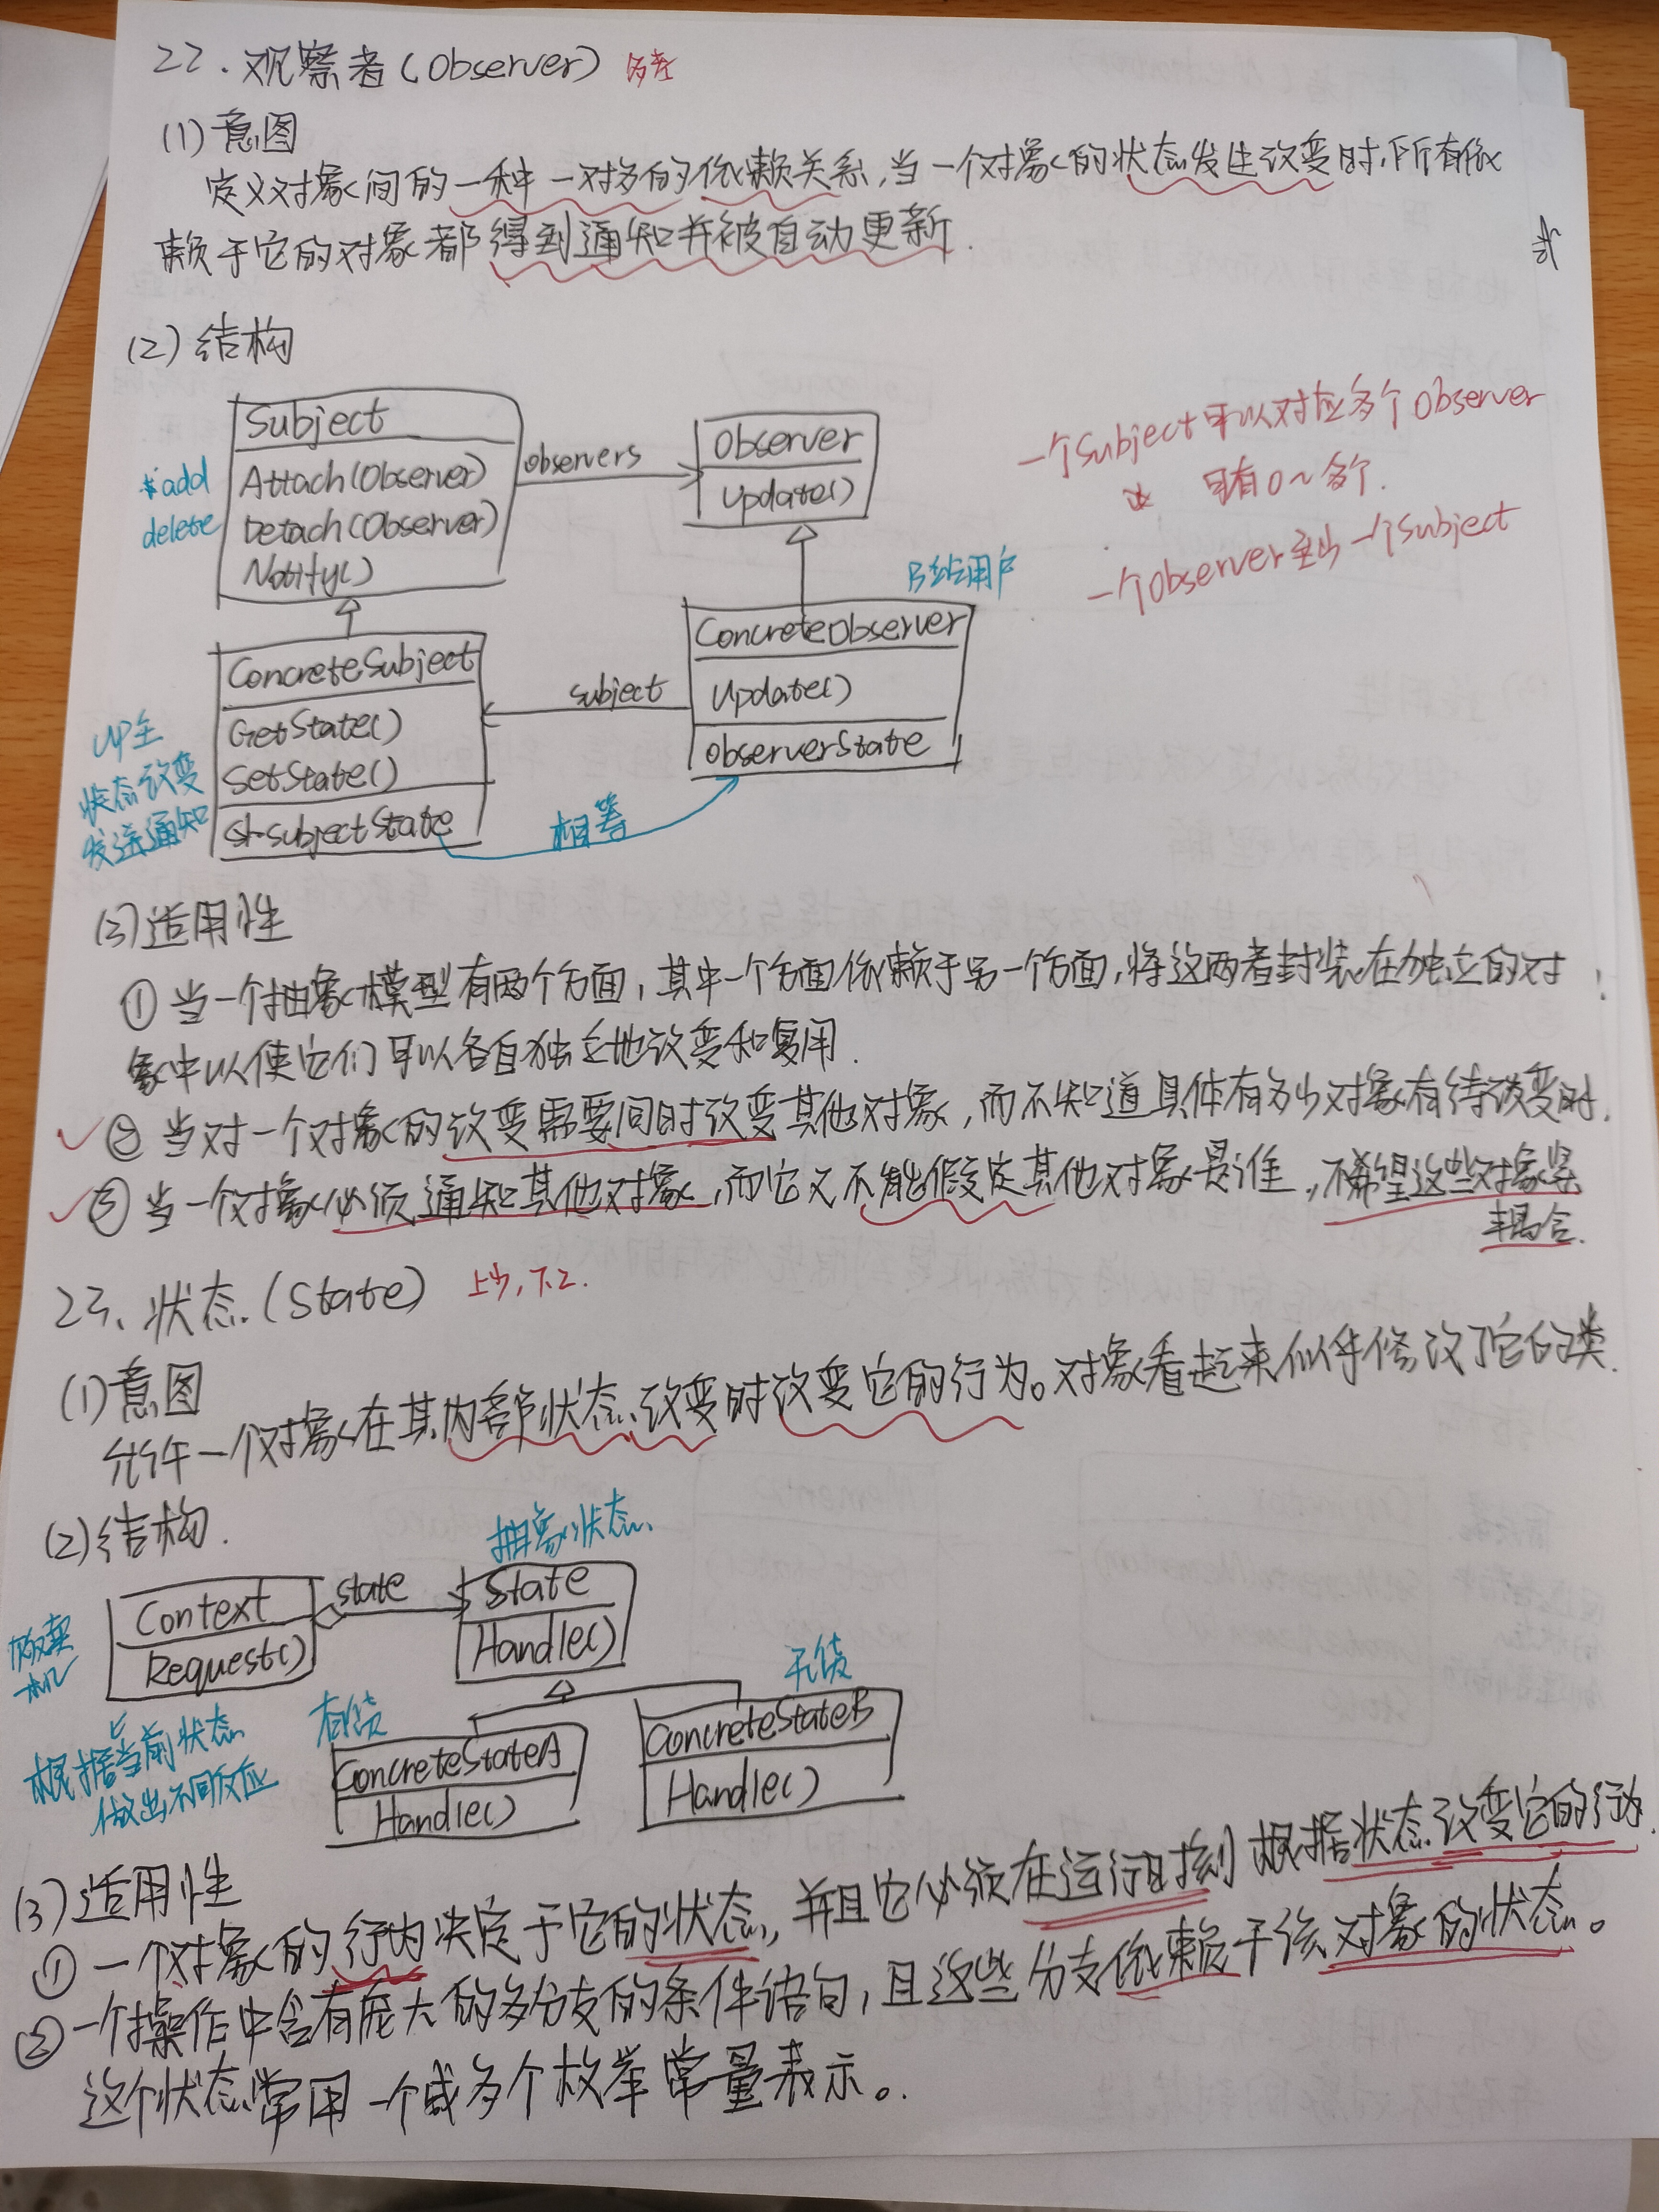 22.观察者(Observer) 多考
(1)意图
定义对象间的一种一对多的依赖关系,当一个对象的状态发生改变时,所有依
赖于它的对象都得到通知并被自动更新.
(2)结构
Subject
Attach(Observer)
Detach(Observer)
Notify()
add
delete
observers
Observer
Update()
一个Subject可以对应多个Observer
可有0~多个.
一个Observer至少一个Subject
B站用户
ConcreteSubject
GetState()
SetState()
subjectState
UP主
状态改变
发送通知
subject
ConcreteObserver
Update()
observerState
相等
(3)适用性
①当一个抽象模型有两个方面,其中一个方面依赖于另一个方面,将这两者封装在独立的对
象中以使它们可以各自独立地改变和复用.
②当对一个对象的改变需要同时改变其他对象,而不知道具体有多少对象有待改变时.
③当一个对象必须通知其他对象,而它又不能假定其他对象是谁,不希望这些对象紧
耦合.
23、状态(State) 上午,下2.
(1)意图
允许一个对象在其内部状态改变时改变它的行为。对象看起来似乎修改了它的类.
(2)结构.
抽象状态
Context
Request()
state
State
Handle()
贩卖
机
根据当前状态
做出不同反应
有货
ConcreteStateA
Handle()
无货
ConcreteStateB
Handle()
(3)适用性
①一个对象的行为决定于它的状态,并且它必须在运行时刻根据状态改变它的行为.
②一个操作中含有庞大的多分支的条件语句,且这些分支依赖于该对象的状态。
这个状态常用一个或多个枚举常量表示。